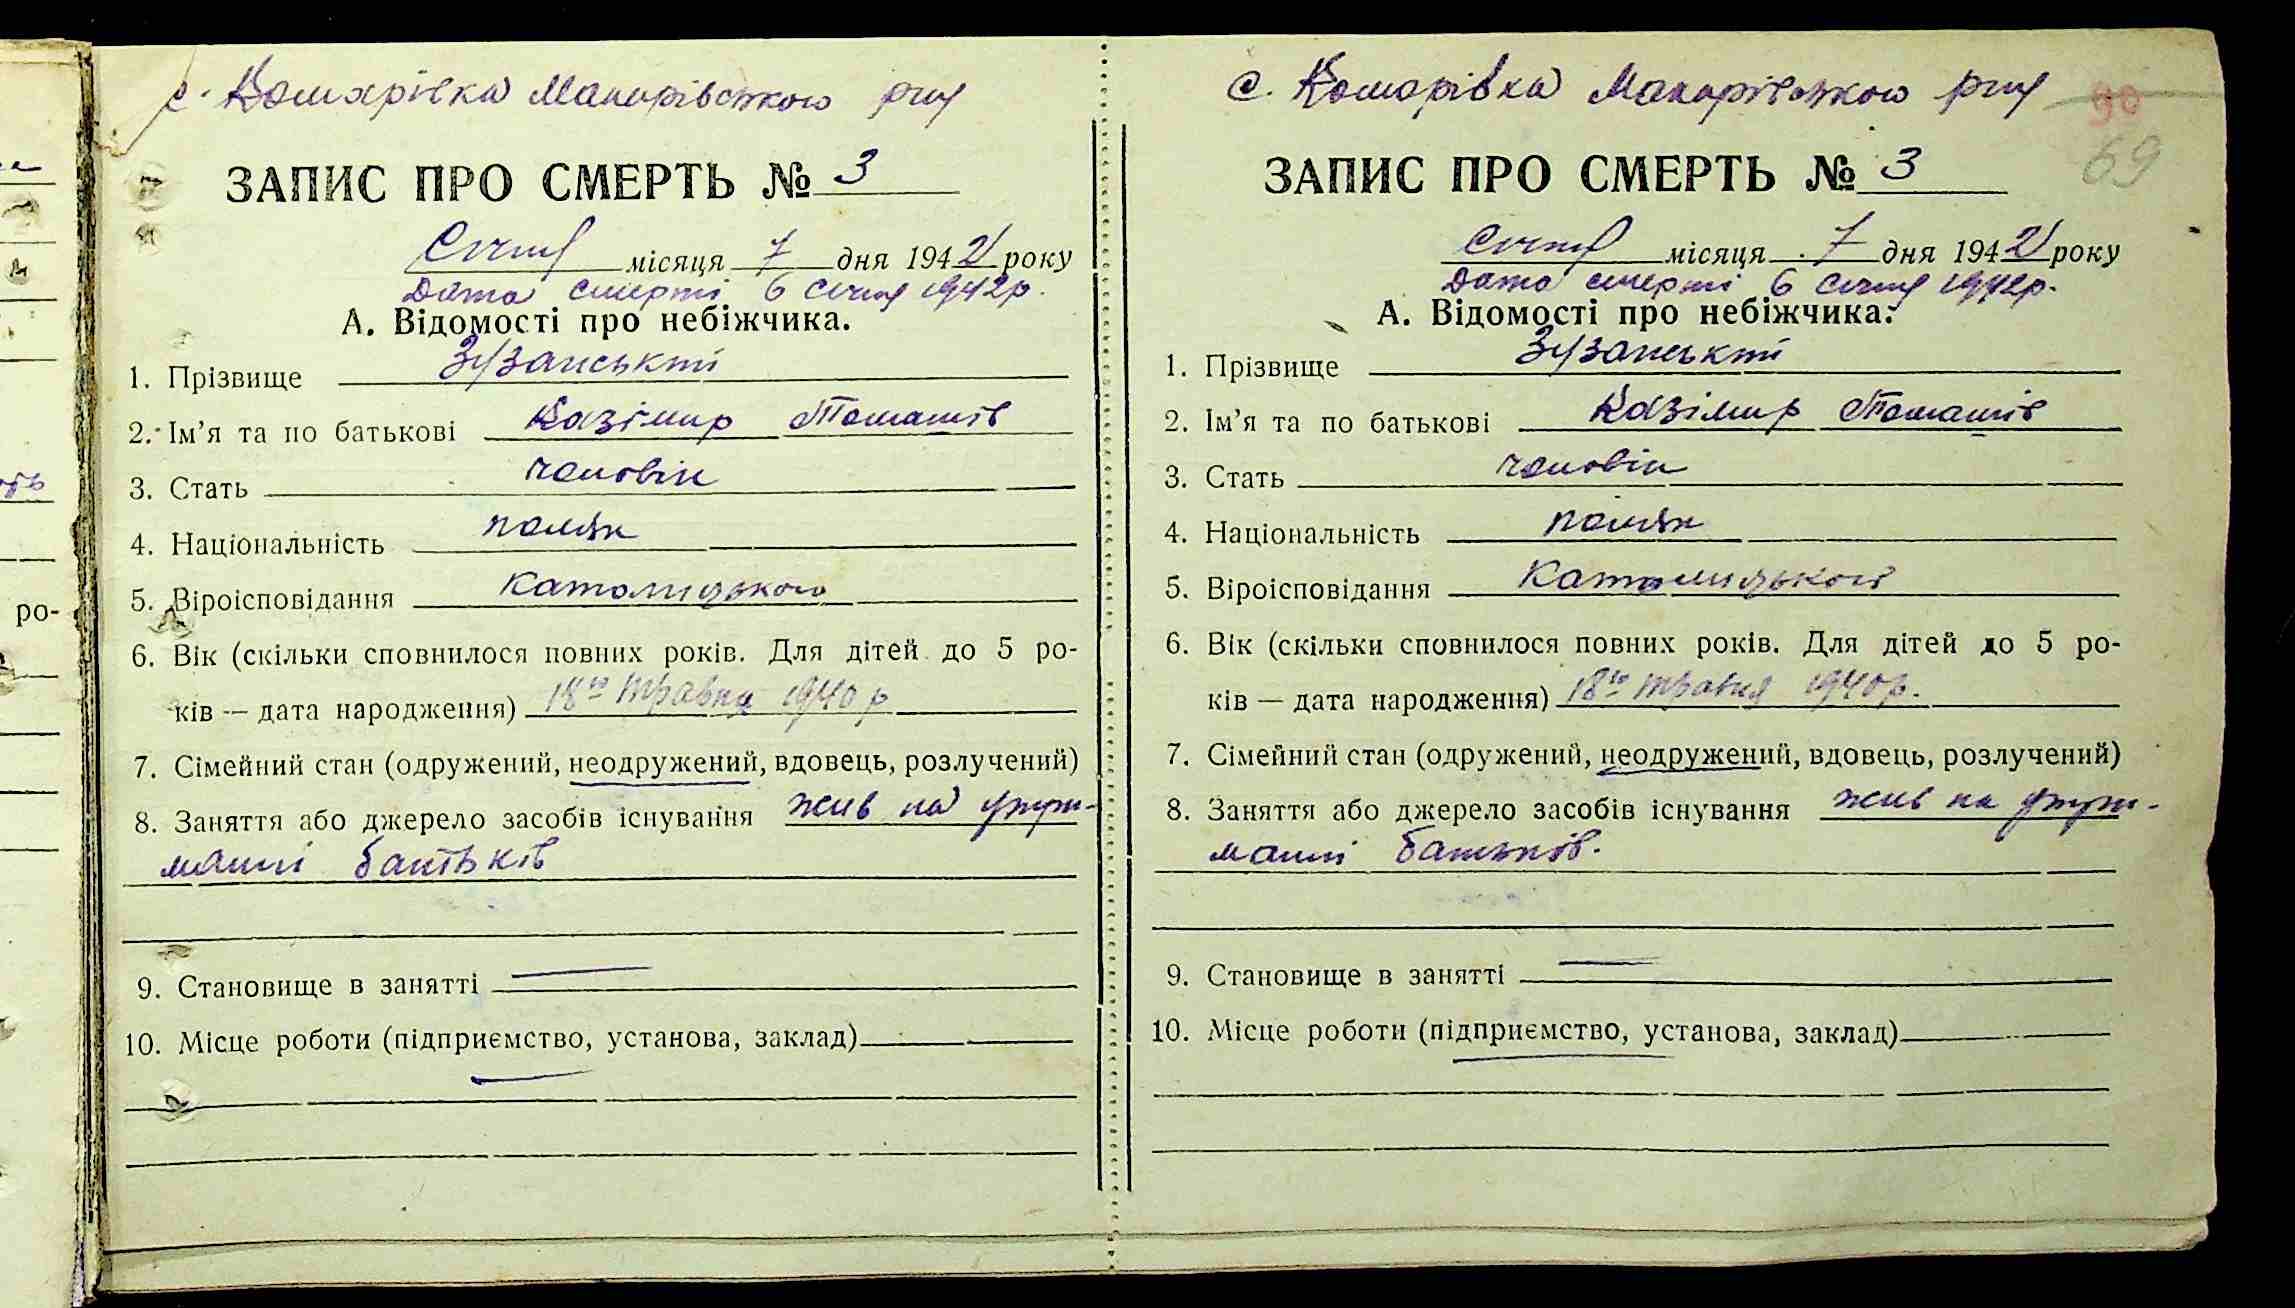 с. Комарівка Макарівського р-ну
ЗАПИС ПРО СМЕРТЬ № 3
Січня місяця 7 дня 1942 року
Дата смерті 6 січня 1942р.
А. Відомості про небіжчика.
1. Прізвище Зузанський
2. Ім'я та по батькові Казімир Томашів
3. Стать чоловік
4. Національність поляк
5. Віроісповідання католицького
6. Вік (скільки сповнилося повних років. Для дітей до 5 ро-
ків — дата народження) 18го травня 1940 р
7. Сімейний стан (одружений, неодружений, вдовець, розлучений)
8. Заняття або джерело засобів існування жив на утри-
манні батьків
9. Становище в занятті —
10. Місце роботи (підприємство, установа, заклад)
—
с. Комарівка Макарівського р-ну
90
69
ЗАПИС ПРО СМЕРТЬ № 3
Січня місяця 7 дня 1942 року
Дата смерті 6 січня 1942р.
А. Відомості про небіжчика.
1. Прізвище Зузанський
2. Ім'я та по батькові Казімир Томашів
3. Стать чоловік
4. Національність поляк
5. Віроісповідання католицького
6. Вік (скільки сповнилося повних років. Для дітей до 5 ро-
ків — дата народження) 18го травня 1940р.
7. Сімейний стан (одружений, неодружений, вдовець, розлучений)
8. Заняття або джерело засобів існування жив на утри-
манні батьків.
9. Становище в занятті —
10. Місце роботи (підприємство, установа, заклад)
—
ро-